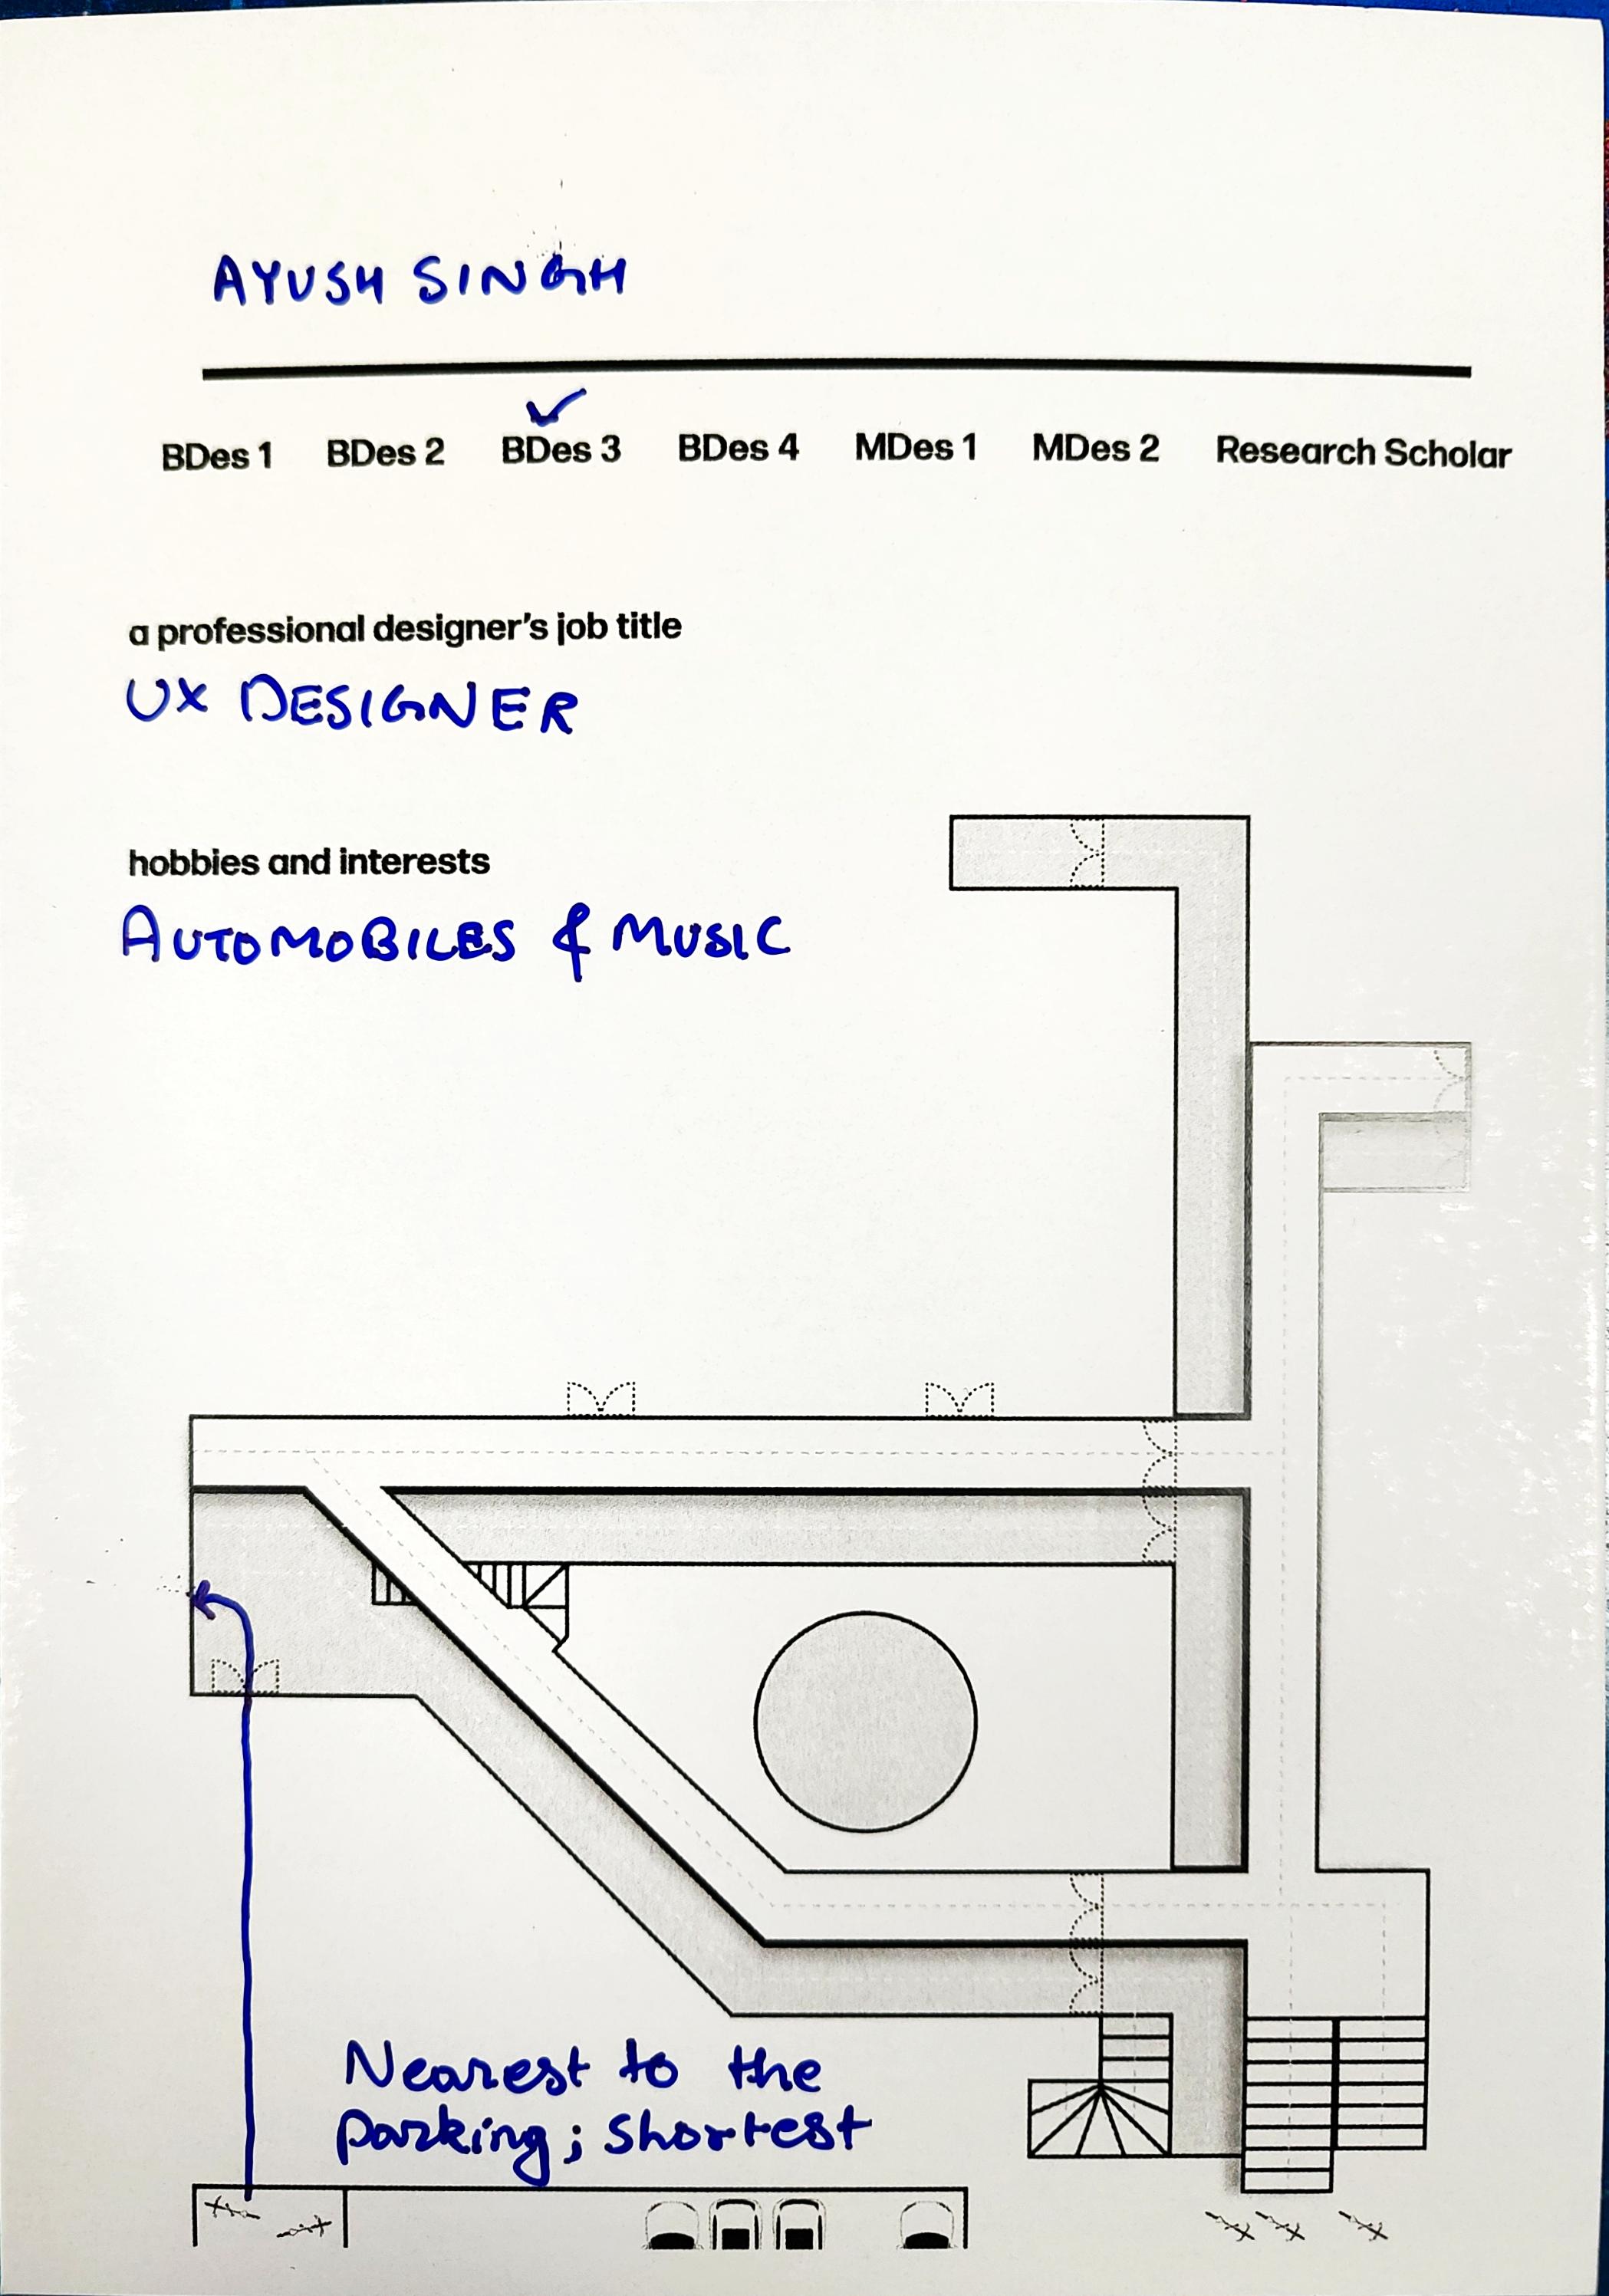 AYUSH SINGH
BDes 1 BDes 2 BDes 3 BDes 4 MDes 1 MDes 2 Research Scholar
a professional designer's job title
UX DESIGNER
hobbies and interests
AUTOMOBILES & MUSIC
Nearest to the
parking; shortest